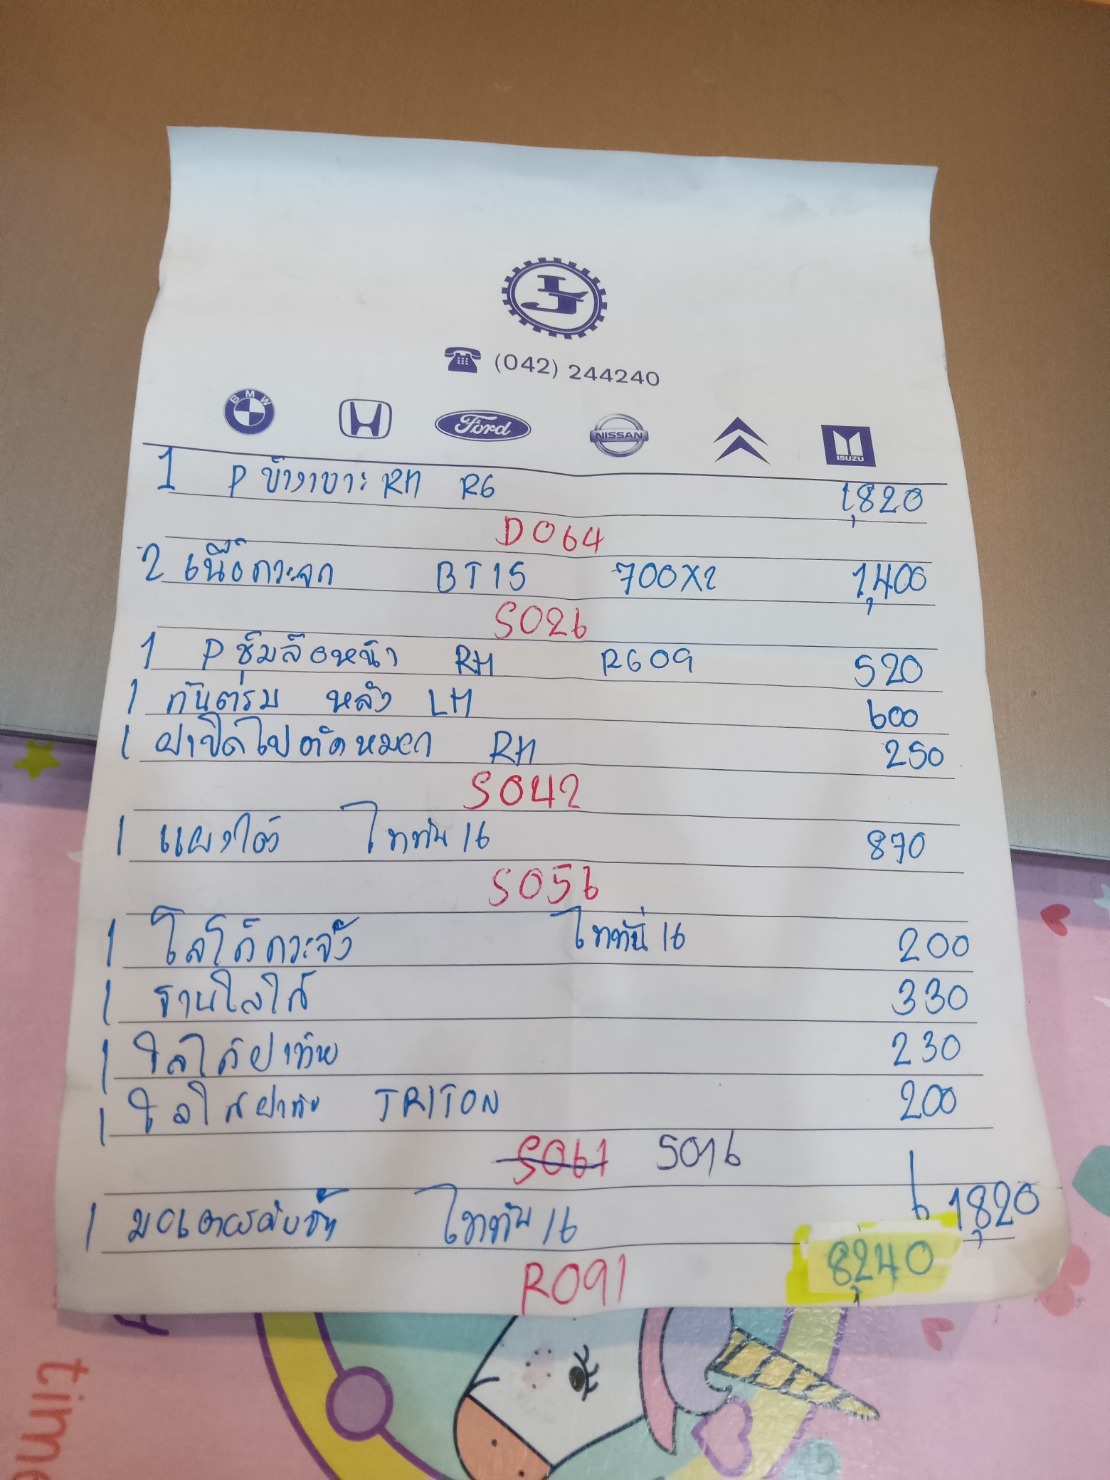 (042) 244240
BMW Ford NISSAN ISUZU
1 P ข้างเบาะ RH R6 1,820
D064
2 เนื้อกระจก BT15 700X2 1,400
S026
1 P ซุ้มล้อหน้า RH R609 520
1 กันด่รม หลัง LH 600
1 ฝาปิดไปตัดหมอก RH 250
S042
1 แผงใต้ ไททัน 16 870
S056
1 โลโก้กระจัง ไททัน 16 200
1 ฐานโลโก้ 330
1 โลโก้ฝาท้าย 230
1 โลโก้ฝาท้าย TRITON 200
S067 S016
1 มอเตอร์ 1,820
ไททัน 16
8,240
R091
time